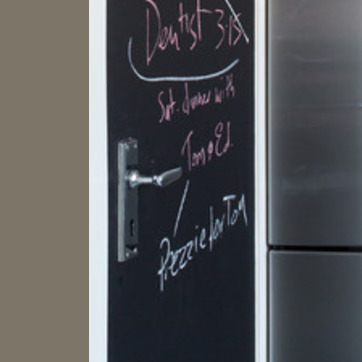 Dentist 3:15
Sat. dinner with
Tom & Ed.
Prezzie for Tom